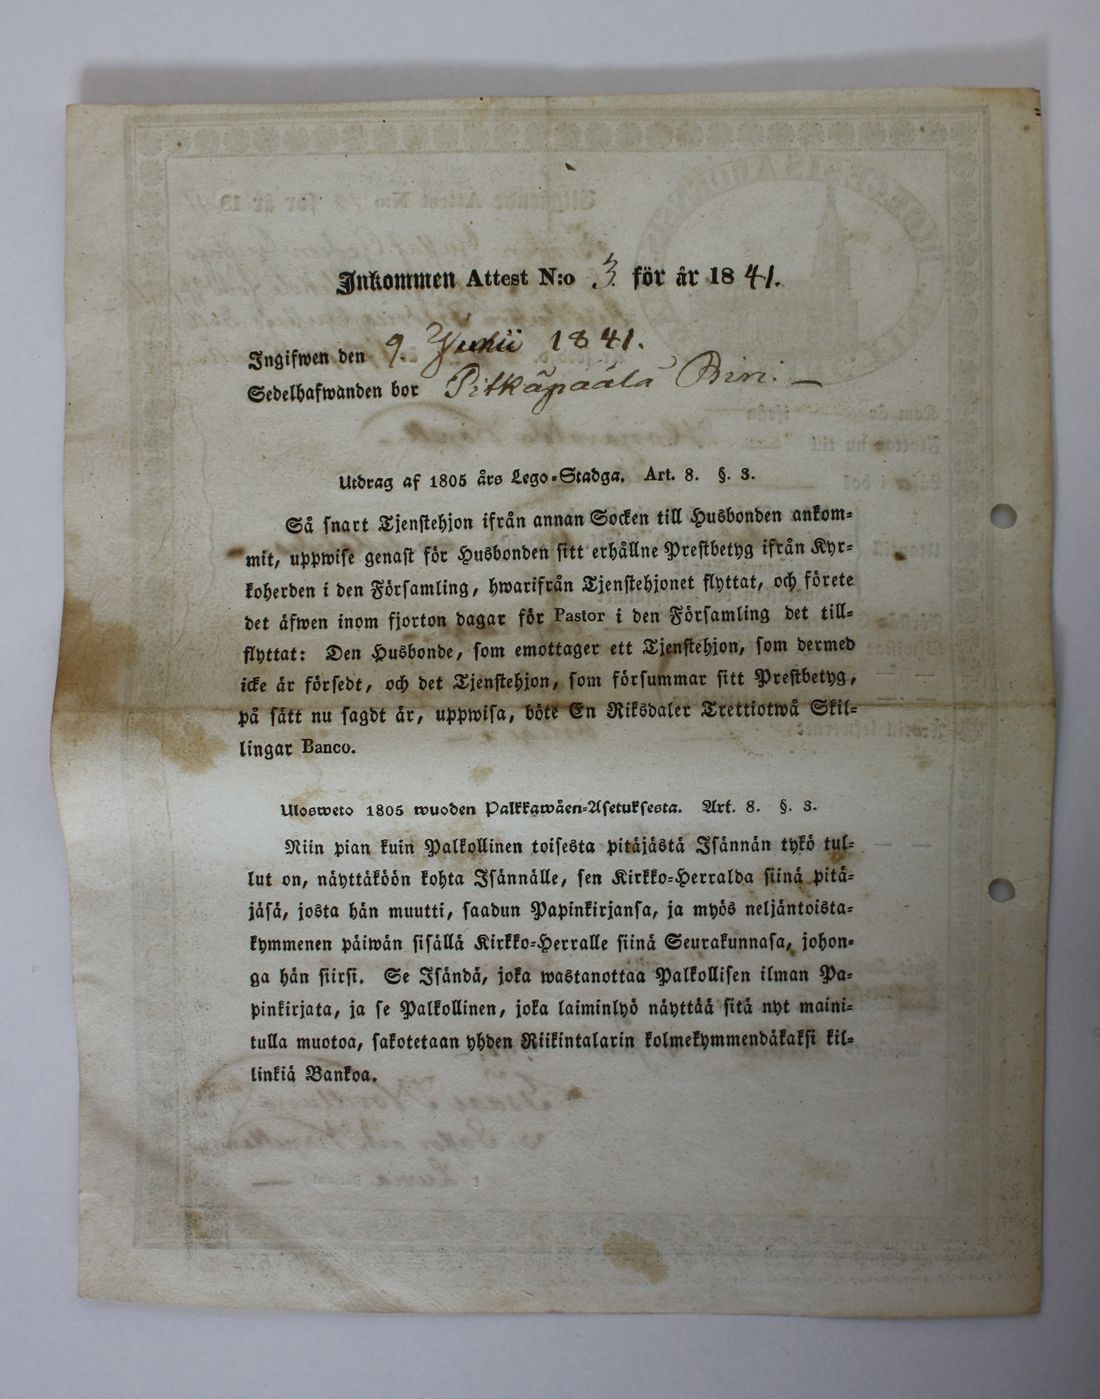 Inkommen Attest N:o 3 för år 1841.
Ingifwen den 9. Junii 1841.
Sedelhafwanden bor Pitkäpäälä
Utdrag af 1805 års Lego-Stadga. Art. 8. §. 3.
Så snart Tjenstehjon ifrån annan Socken till Husbonden ankom-
mit, uppwise genast för Husbonden sitt erhållne Prestbetyg ifrån Kyr-
koherden i den Församling, hwarifrån Tjenstehjonet flyttat, och förete
det äfwen inom fjorton dagar för Pastor i den Församling det till-
flyttat: Den Husbonde, som emottager ett Tjenstehjon, som dermed
icke är försedt, och det Tjenstehjon, som försummar sitt Prestbetyg,
på sätt nu sagdt är, uppwisa, böte En Riksdaler Trettiotwå Skil-
lingar Banco.
Ulosweto 1805 wuoden Palkkawäen-Asetuksesta. Art. 8. §. 3.
Niin pian kuin Palkollinen toisesta pitäjästä Isännän tykö tul-
lut on, näyttäköön kohta Isännälle, sen Kirkko-Herralda siinä pitä-
jäsä, josta hän muutti, saadun Papinkirjansa, ja myös neljäntoista-
kymmenen päiwän sisällä Kirkko-Herralle siinä Seurakunnasa, johon-
ga hän siirsi. Se Isändä, joka wastanottaa Palkollisen ilman Pa-
pinkirjata, ja se Palkollinen, joka laiminlyö näyttää sitä nyt maini-
tulla muotoa, sakotetaan yhden Riikintalarin kolmekymmendäkaksi kil-
linkiä Bankoa.